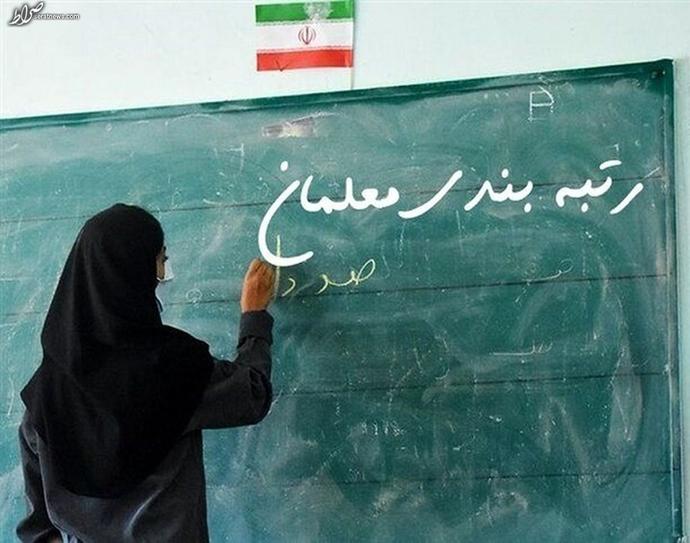 صراط
seratnews.com
رتبه بندی معلمان
صددا